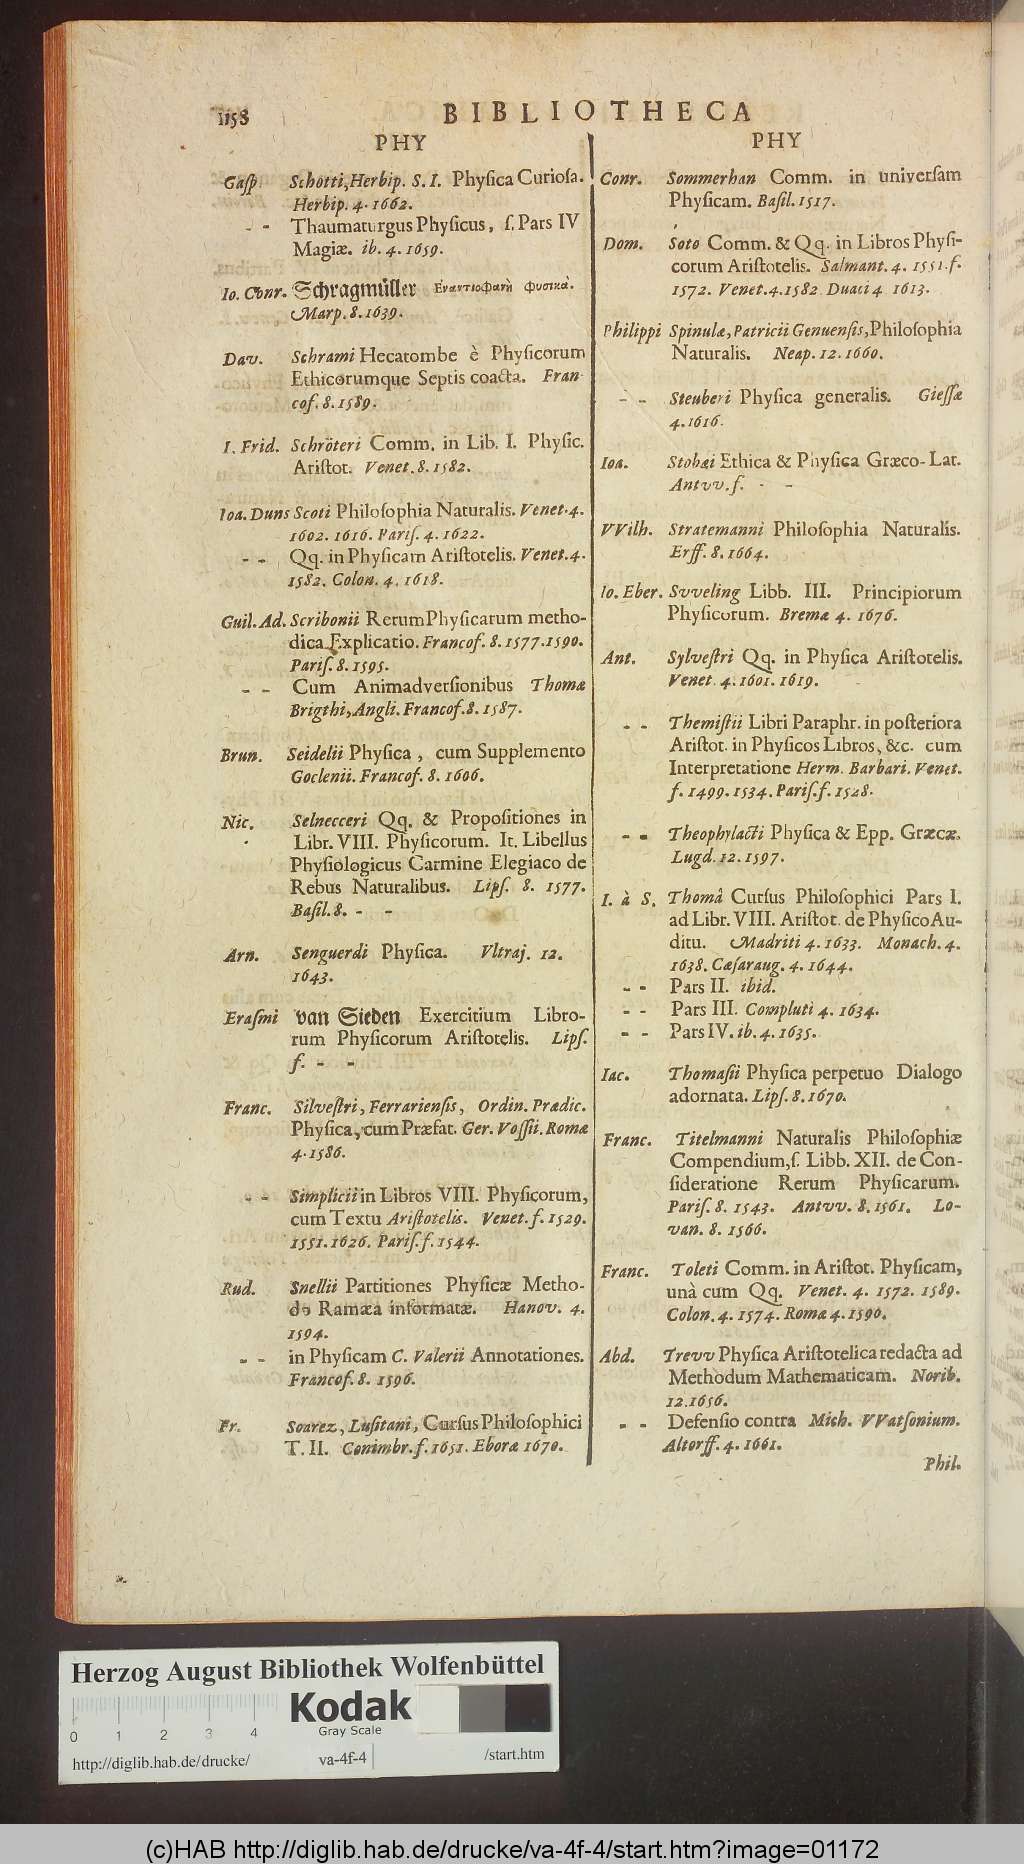 1158
BIBLIOTHECA
PHY
Gasp Schotti, Herbip. S. I. Physica Curiosa.
Herbip. 4. 1662.
- - Thaumaturgus Physicus, ſ. Pars IV
Magiæ. ib. 4. 1659.
Io. Conr. Schragmüller Ἐναντιοφανῆ φυσικὰ.
Marp. 8. 1639.
Dav. Schrami Hecatombe è Phyſicorum
Ethicorumque Septis coacta. Fran-
cof. 8. 1589.
I. Frid. Schröteri Comm. in Lib. I. Phyſic.
Ariſtot. Venet. 8. 1582.
Ioa. Duns Scoti Philoſophia Naturalis. Venet. 4.
1602. 1616. Pariſ. 4. 1622.
- - Qq. in Phyſicam Ariſtotelis. Venet. 4.
1582. Colon. 4. 1618.
Guil. Ad. Scribonii Rerum Phyſicarum metho-
dica Explicatio. Francof. 8. 1577. 1590.
Pariſ. 8. 1595.
- - Cum Animadverſionibus Thomæ
Brigthi, Angli. Francof. 8. 1587.
Brun. Seidelii Phyſica, cum Supplemento
Goclenii. Francof. 8. 1606.
Nic. Selnecceri Qq. & Propoſitiones in
Libr. VIII. Phyſicorum. It. Libellus
Phyſiologicus Carmine Elegiaco de
Rebus Naturalibus. Lipſ. 8. 1577.
Baſil. 8. - -
Arn. Senguerdi Phyſica. Vltraj. 12.
1643.
Eraſmi van Sieden Exercitium Libro-
rum Phyſicorum Ariſtotelis. Lipſ.
f. - -
Franc. Silveſtri, Ferrarienſis, Ordin. Prædic.
Phyſica, cum Præfat. Ger. Voſſii. Romæ
4. 1586.
- - Simplicii in Libros VIII. Phyſicorum,
cum Textu Ariſtotelis. Venet. f. 1529.
1551. 1626. Pariſ. f. 1544.
Rud. Snellii Partitiones Phyſicæ Metho-
do Ramæa informatæ. Hanov. 4.
1594.
- - in Phyſicam C. Valerii Annotationes.
Francof. 8. 1596.
Fr. Soarez, Luſitani, Curſus Philoſophici
T. II. Conimbr. f. 1651. Eboræ 1670.
PHY
Conr. Sommerhan Comm. in univerſam
Phyſicam. Baſil. 1517.
Dom. Soto Comm. & Qq. in Libros Phyſi-
corum Ariſtotelis. Salmant. 4. 1551. f.
1572. Venet. 4. 1582 Duaci 4 1613.
Philippi Spinulæ, Patricii Genuenſis, Philoſophia
Naturalis. Neap. 12. 1660.
- - Steuberi Phyſica generalis. Gieſſæ
4. 1616.
Ioa. Stobæi Ethica & Phyſica Græco-Lat.
Antvv. f. - -
VVilh. Stratemanni Philoſophia Naturalis.
Erff. 8. 1664.
Io. Eber. Svveling Libb. III. Principiorum
Phyſicorum. Bremæ 4. 1676.
Ant. Sylveſtri Qq. in Phyſica Ariſtotelis.
Venet. 4. 1601. 1619.
- - Themiſtii Libri Paraphr. in poſteriora
Ariſtot. in Phyſicos Libros, &c. cum
Interpretatione Herm. Barbari. Venet.
f. 1499. 1534. Pariſ. f. 1528.
- - Theophylacti Phyſica & Epp. Græcæ.
Lugd. 12. 1597.
I. à S. Thomâ Curſus Philoſophici Pars I.
ad Libr. VIII. Ariſtot. de Phyſico Au-
ditu. Madriti 4. 1633. Monach. 4.
1638. Cæſaraug. 4. 1644.
- - Pars II. ibid.
- - Pars III. Compluti 4. 1634.
- - Pars IV. ib. 4. 1635.
Iac. Thomaſii Phyſica perpetuo Dialogo
adornata. Lipſ. 8. 1670.
Franc. Titelmanni Naturalis Philoſophiæ
Compendium, ſ. Libb. XII. de Con-
ſideratione Rerum Phyſicarum.
Pariſ. 8. 1543. Antvv. 8. 1561. Lo-
van. 8. 1566.
Franc. Toleti Comm. in Ariſtot. Phyſicam,
unà cum Qq. Venet. 4. 1572. 1589.
Colon. 4. 1574. Romæ 4. 1590.
Abd. Trevv Phyſica Ariſtotelica redacta ad
Methodum Mathematicam. Norib.
12. 1656.
- - Defenſio contra Mich. VVatſonium.
Altorff. 4. 1661.
Phil.
Herzog August Bibliothek Wolfenbüttel
Kodak
Gray Scale
0 1 2 3 4
http://diglib.hab.de/drucke/ va-4f-4 /start.htm
(c)HAB http://diglib.hab.de/drucke/va-4f-4/start.htm?image=01172